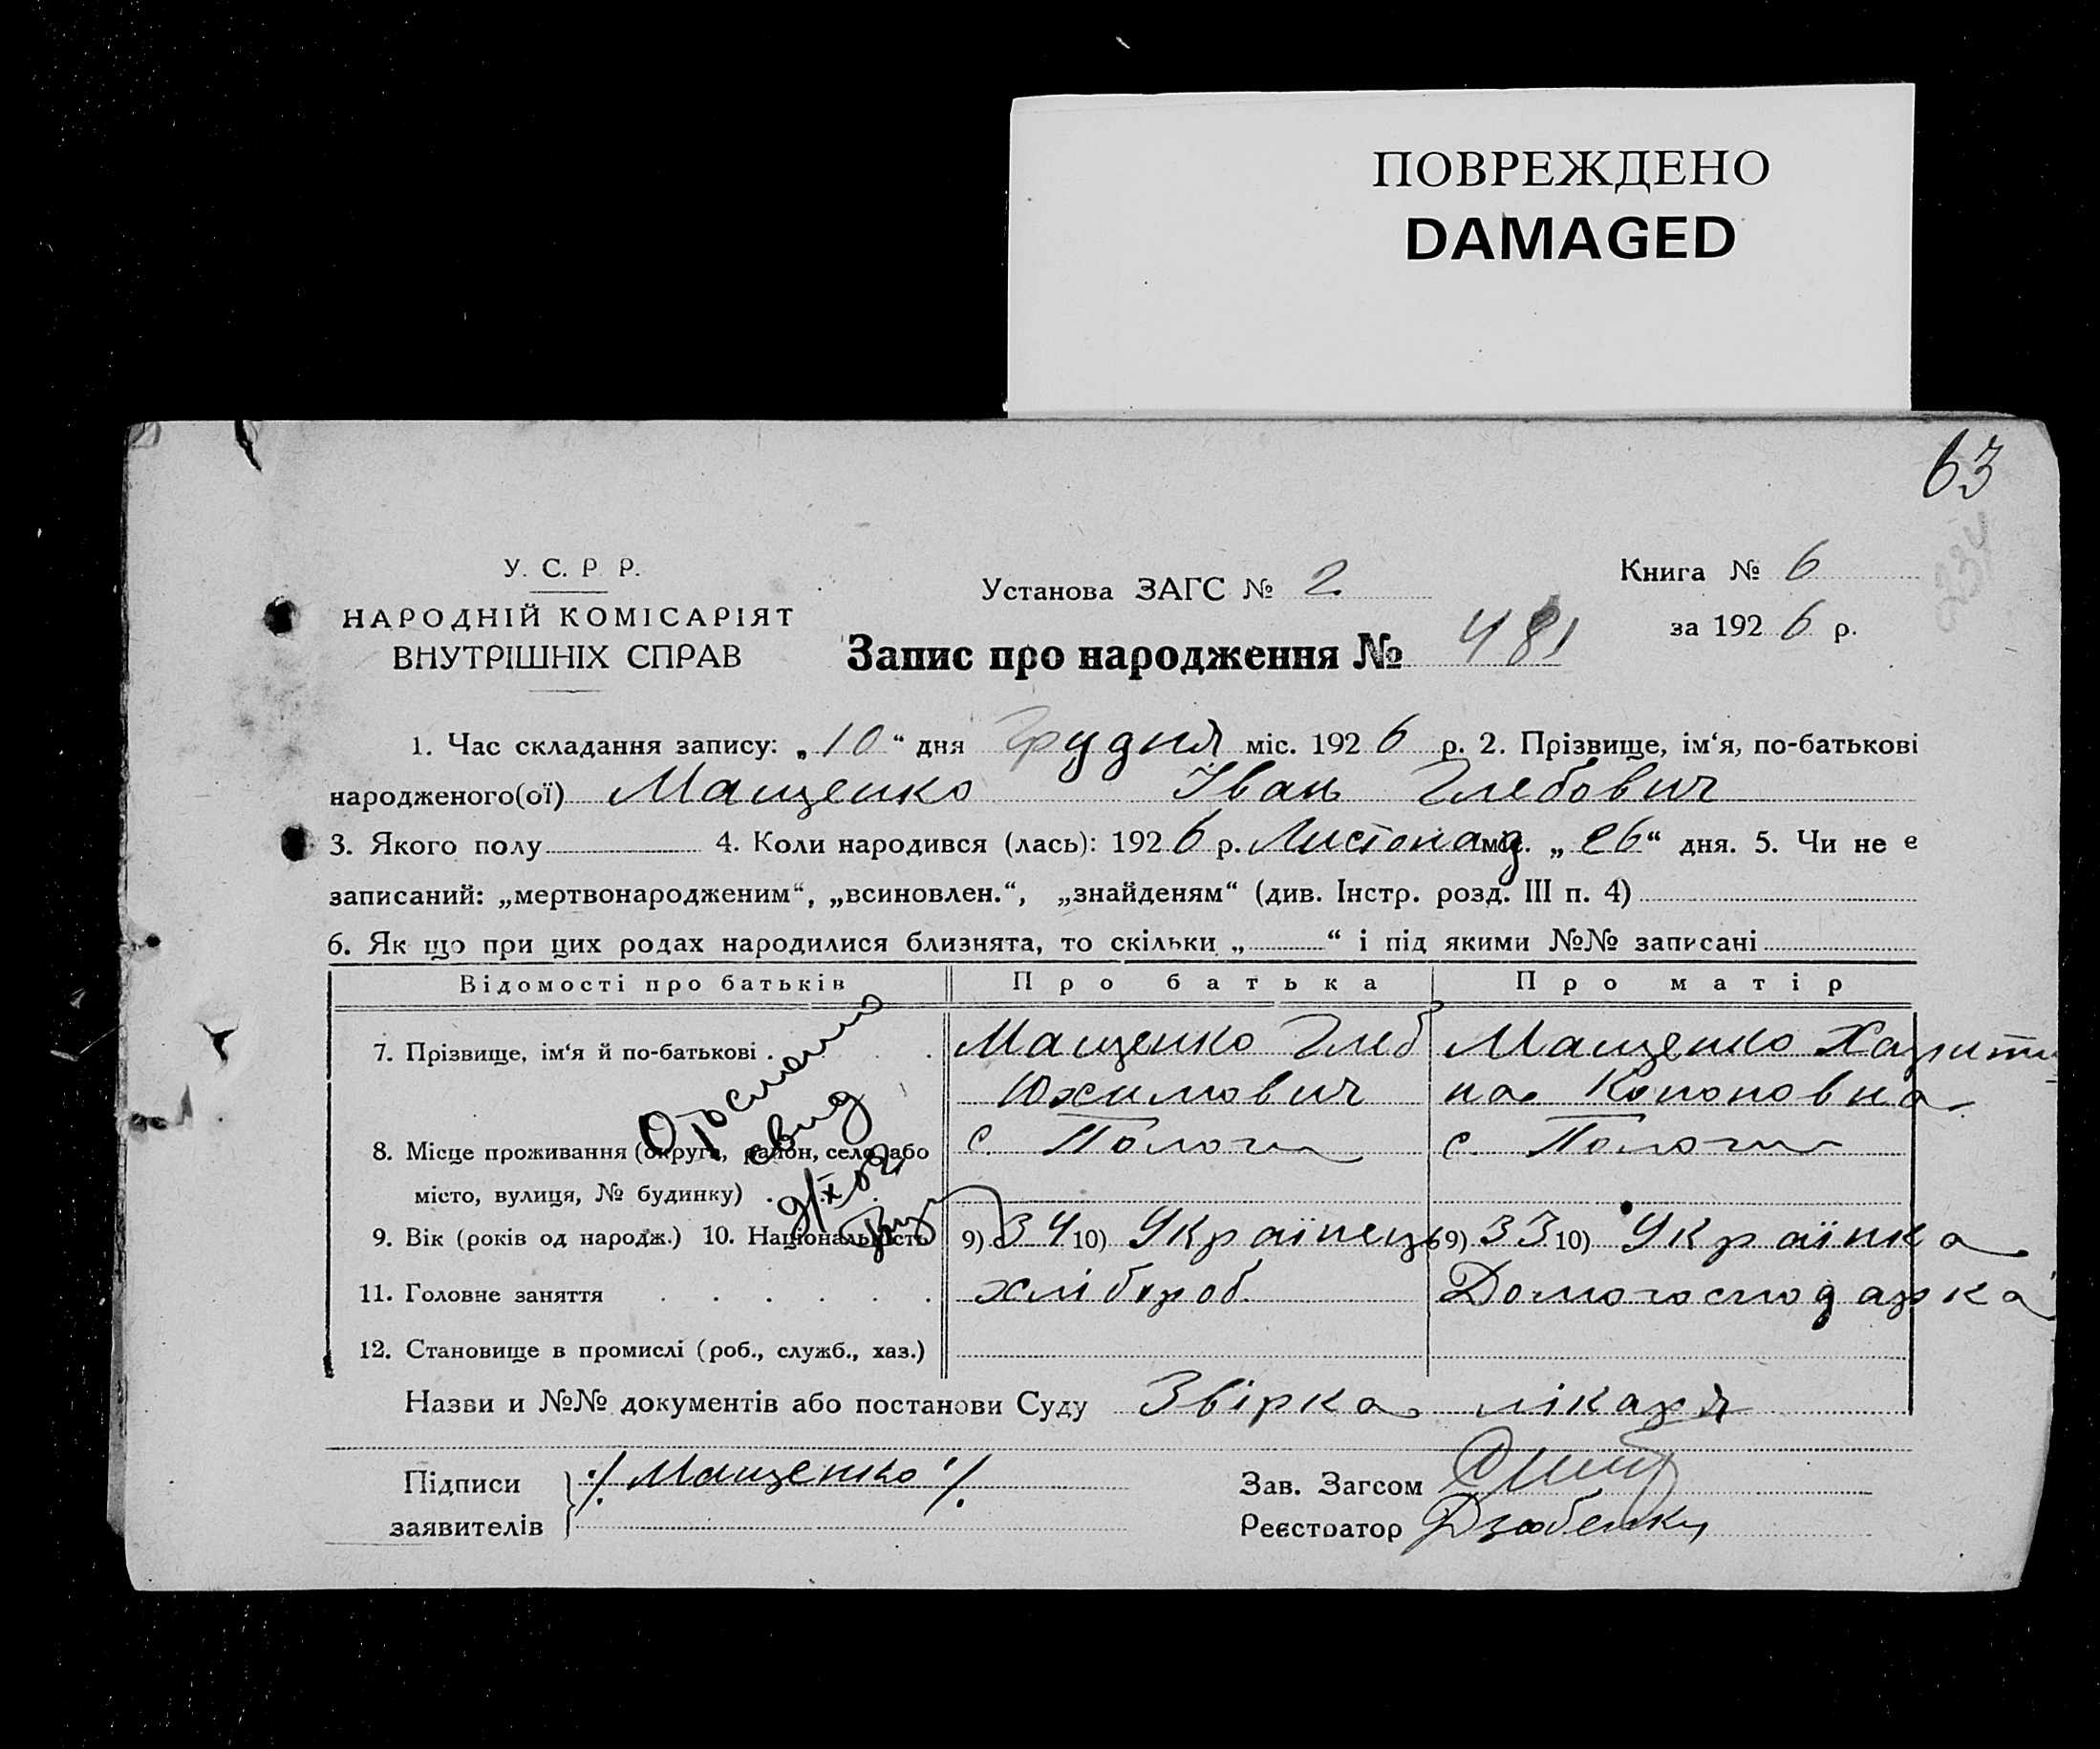 ПОВРЕЖДЕНО
DAMAGED
63
У. С. Р. Р.
НАРОДНІЙ КОМІСАРІЯТ
ВНУТРІШНІХ СПРАВ
Установа ЗАГС № 2
Книга № 6
за 1926 р.
Запис про народження № 481
1. Час складання запису: „10“ дня Грудня міс. 1926 р. 2. Прізвище, ім‘я, по-батькові
народженого(ої) Мащенко Іван Глебович
3. Якого полу 4. Коли народився (лась): 1926 р. Листопад міс. „26“ дня. 5. Чи не є
записаний: „мертвонародженим“, „всиновлен.“, „знайденям“ (див. Інстр. розд. III п. 4)
6. Як що при цих родах народилися близнята, то скільки „ “ і під якими №№ записані
Відомості про батьків Про батька Про матір
7. Прізвище, ім‘я й по-батькові Мащенко Глеб Мащенко Харити
Юхимович на Кононовна
8. Місце проживання (округа, район, село або с. Пологи с. Пологи
місто, вулиця, № будинку)
9. Вік (років од народж.) 10. Національність 9) 34 10) Українець 9) 33 10) Українка
11. Головне заняття хлібороб Домогосподарка
12. Становище в промислі (роб., служб., хаз.)
Назви и №№ документів або постанови Суду Звірка лікаря
Підписи ./. Мащенко ./.
заявителів
Зав. Загсом
Реєстратор